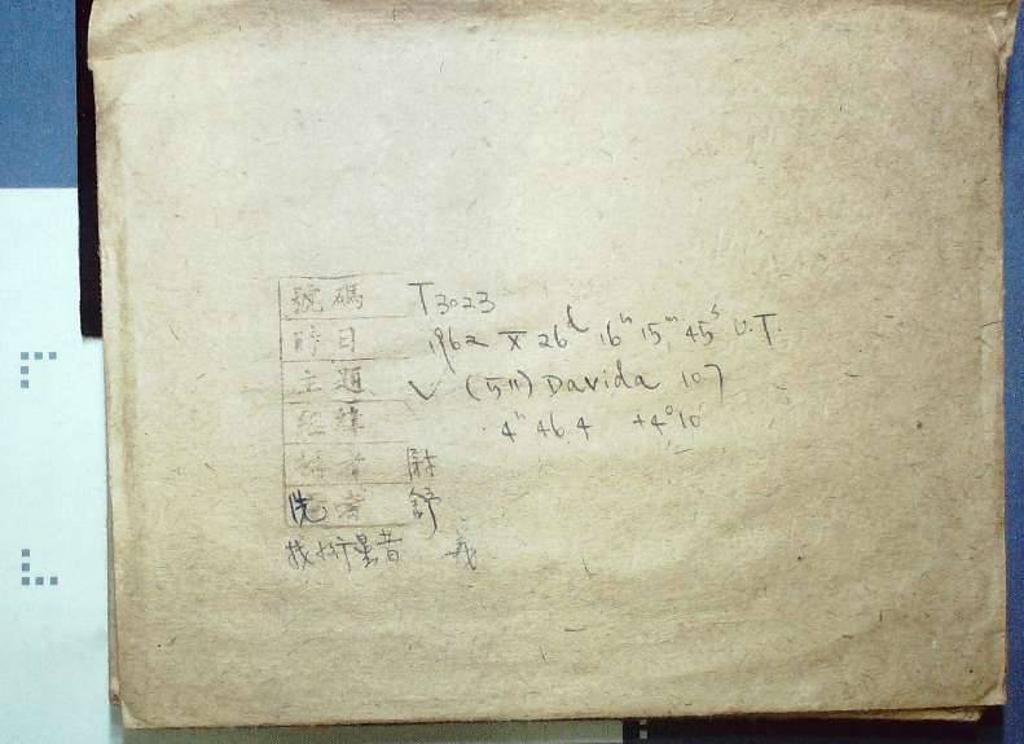 號碼 T3023
時日 1962 X 26d 16h 15m 45s U.T.
主題 V (511) Davida 107
經緯 4h 46.4 +4°10'
者
洗者 舒
找行星者